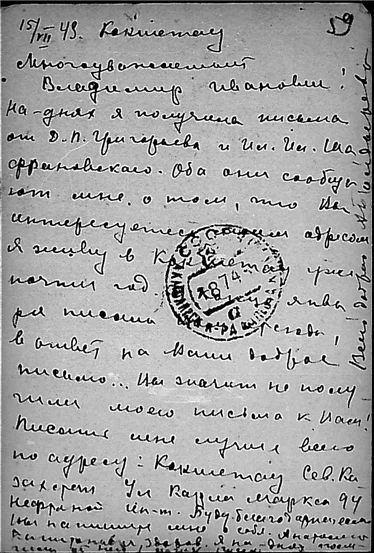 59
15/VII 43. Кокчетау
Многоуважаемый
Владимир Иванович!
На-днях я получила письма
от Д. П. Григорьева и Ил. Ил. Ша
франовского. Оба они сообща
ют мне о том, что Вы
интересуетесь моим адресом
Я живу в Кокчетау уже
почти год
ря писала отсюда,
в ответ на Ваше доброе
письмо... Вы значит не полу-
чили моего письма к Вам!
Писать мне лучше всего
по адресу: Кокчетау Сев. Ка-
захстан ул Карла Маркса 94
Нефтяной Ин-т. Буду благодарна если
Вы напишите мне о себе.
здоров. Я на-днях
Всего доброго